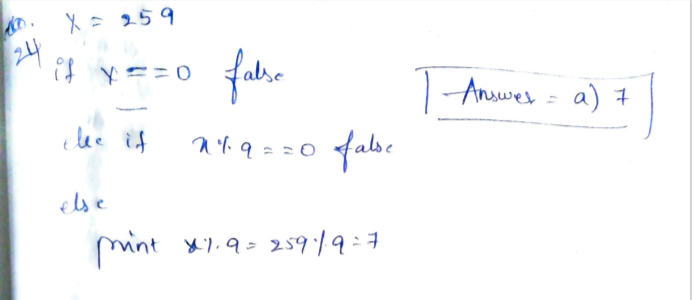 x = 259
24
if x == 0 false
else if x % 9 == 0 false
else
print x % 9 = 259 % 9 = 7
Answer = a) 7